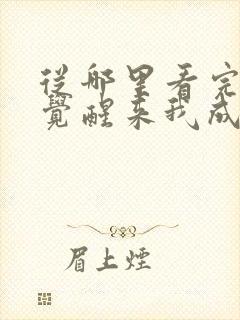 從哪里看完
覺醒來我成
眉上煙